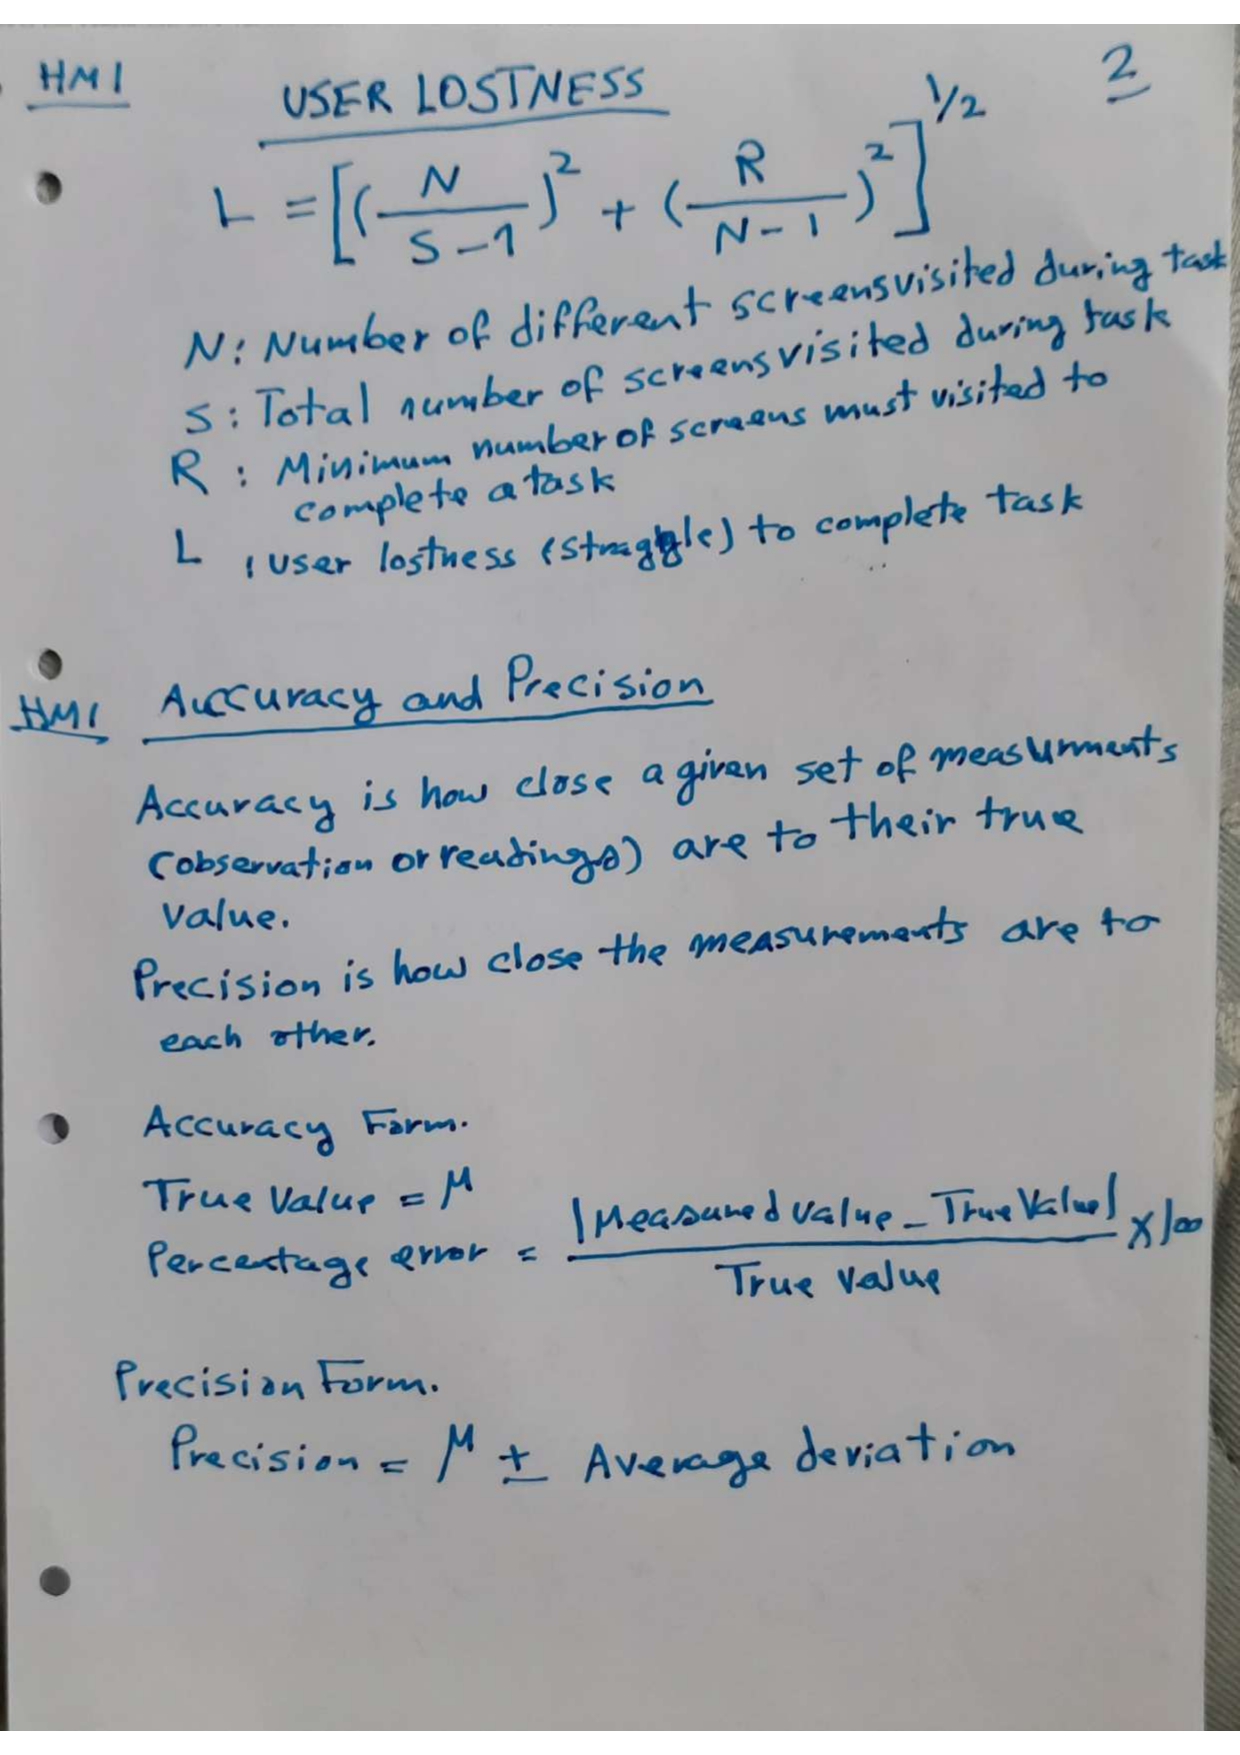 HMI
2
USER LOSTNESS
L = [(N/(S-1))² + (R/(N-1))²]^1/2
N: Number of different screens visited during task
S: Total number of screens visited during task
R: Minimum number of screens must visited to
complete a task
L : user lostness (straggle) to complete task
HMI Accuracy and Precision
Accuracy is how close a given set of measurments
(observation or readings) are to their true
value.
Precision is how close the measurements are to
each other.
Accuracy Form.
True Value = μ
Percentage error = |Measured value - True Value| / True value × 100
Precision Form.
Precision = μ ± Average deviation